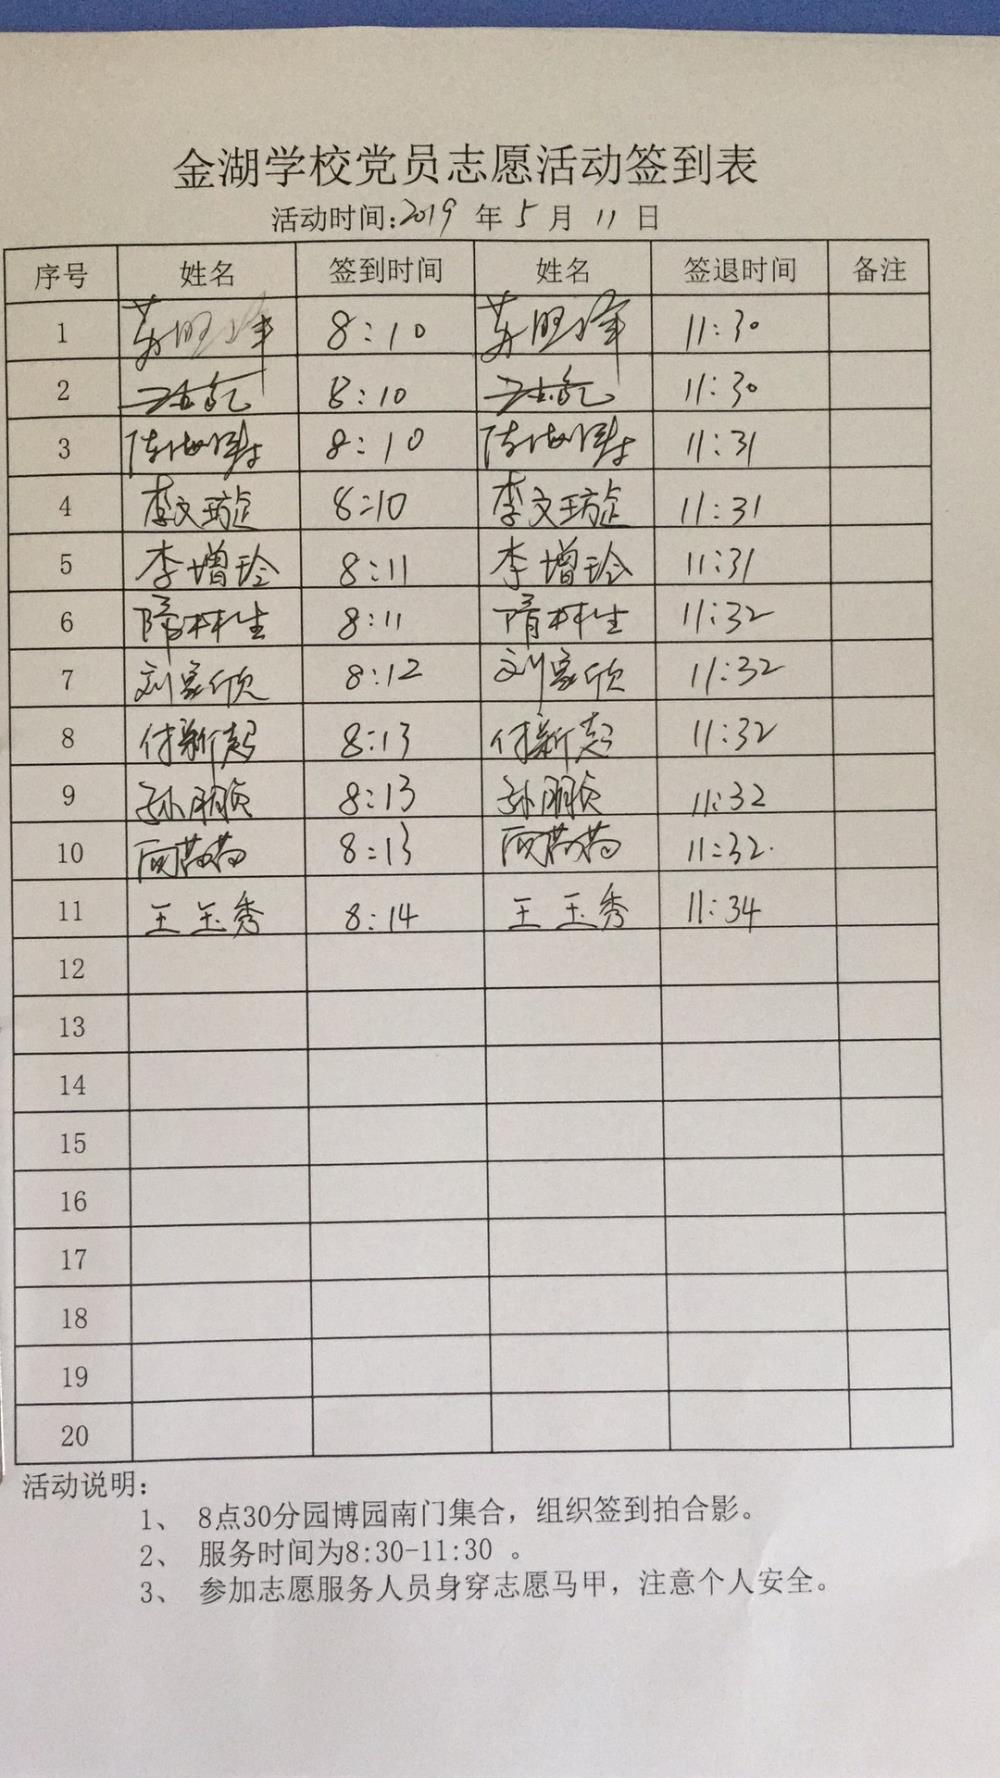 金湖学校党员志愿活动签到表
活动时间:2019 年 5 月 11 日
序号 姓名 签到时间 姓名 签退时间 备注
1 8:10 11:30
2 8:10 11:30
3 8:10 11:31
4 李文璇 8:10 李文璇 11:31
5 李增玲 8:11 李增玲 11:31
6 隋林生 8:11 隋林生 11:32
7 刘家欣 8:12 刘家欣 11:32
8 付新起 8:13 付新起 11:32
9 孙朋贞 8:13 孙朋贞 11:32
10 8:13 11:32
11 王玉秀 8:14 王玉秀 11:34
12
13
14
15
16
17
18
19
20
活动说明:
1、 8点30分园博园南门集合，组织签到拍合影。
2、 服务时间为8:30-11:30 。
3、 参加志愿服务人员身穿志愿马甲，注意个人安全。